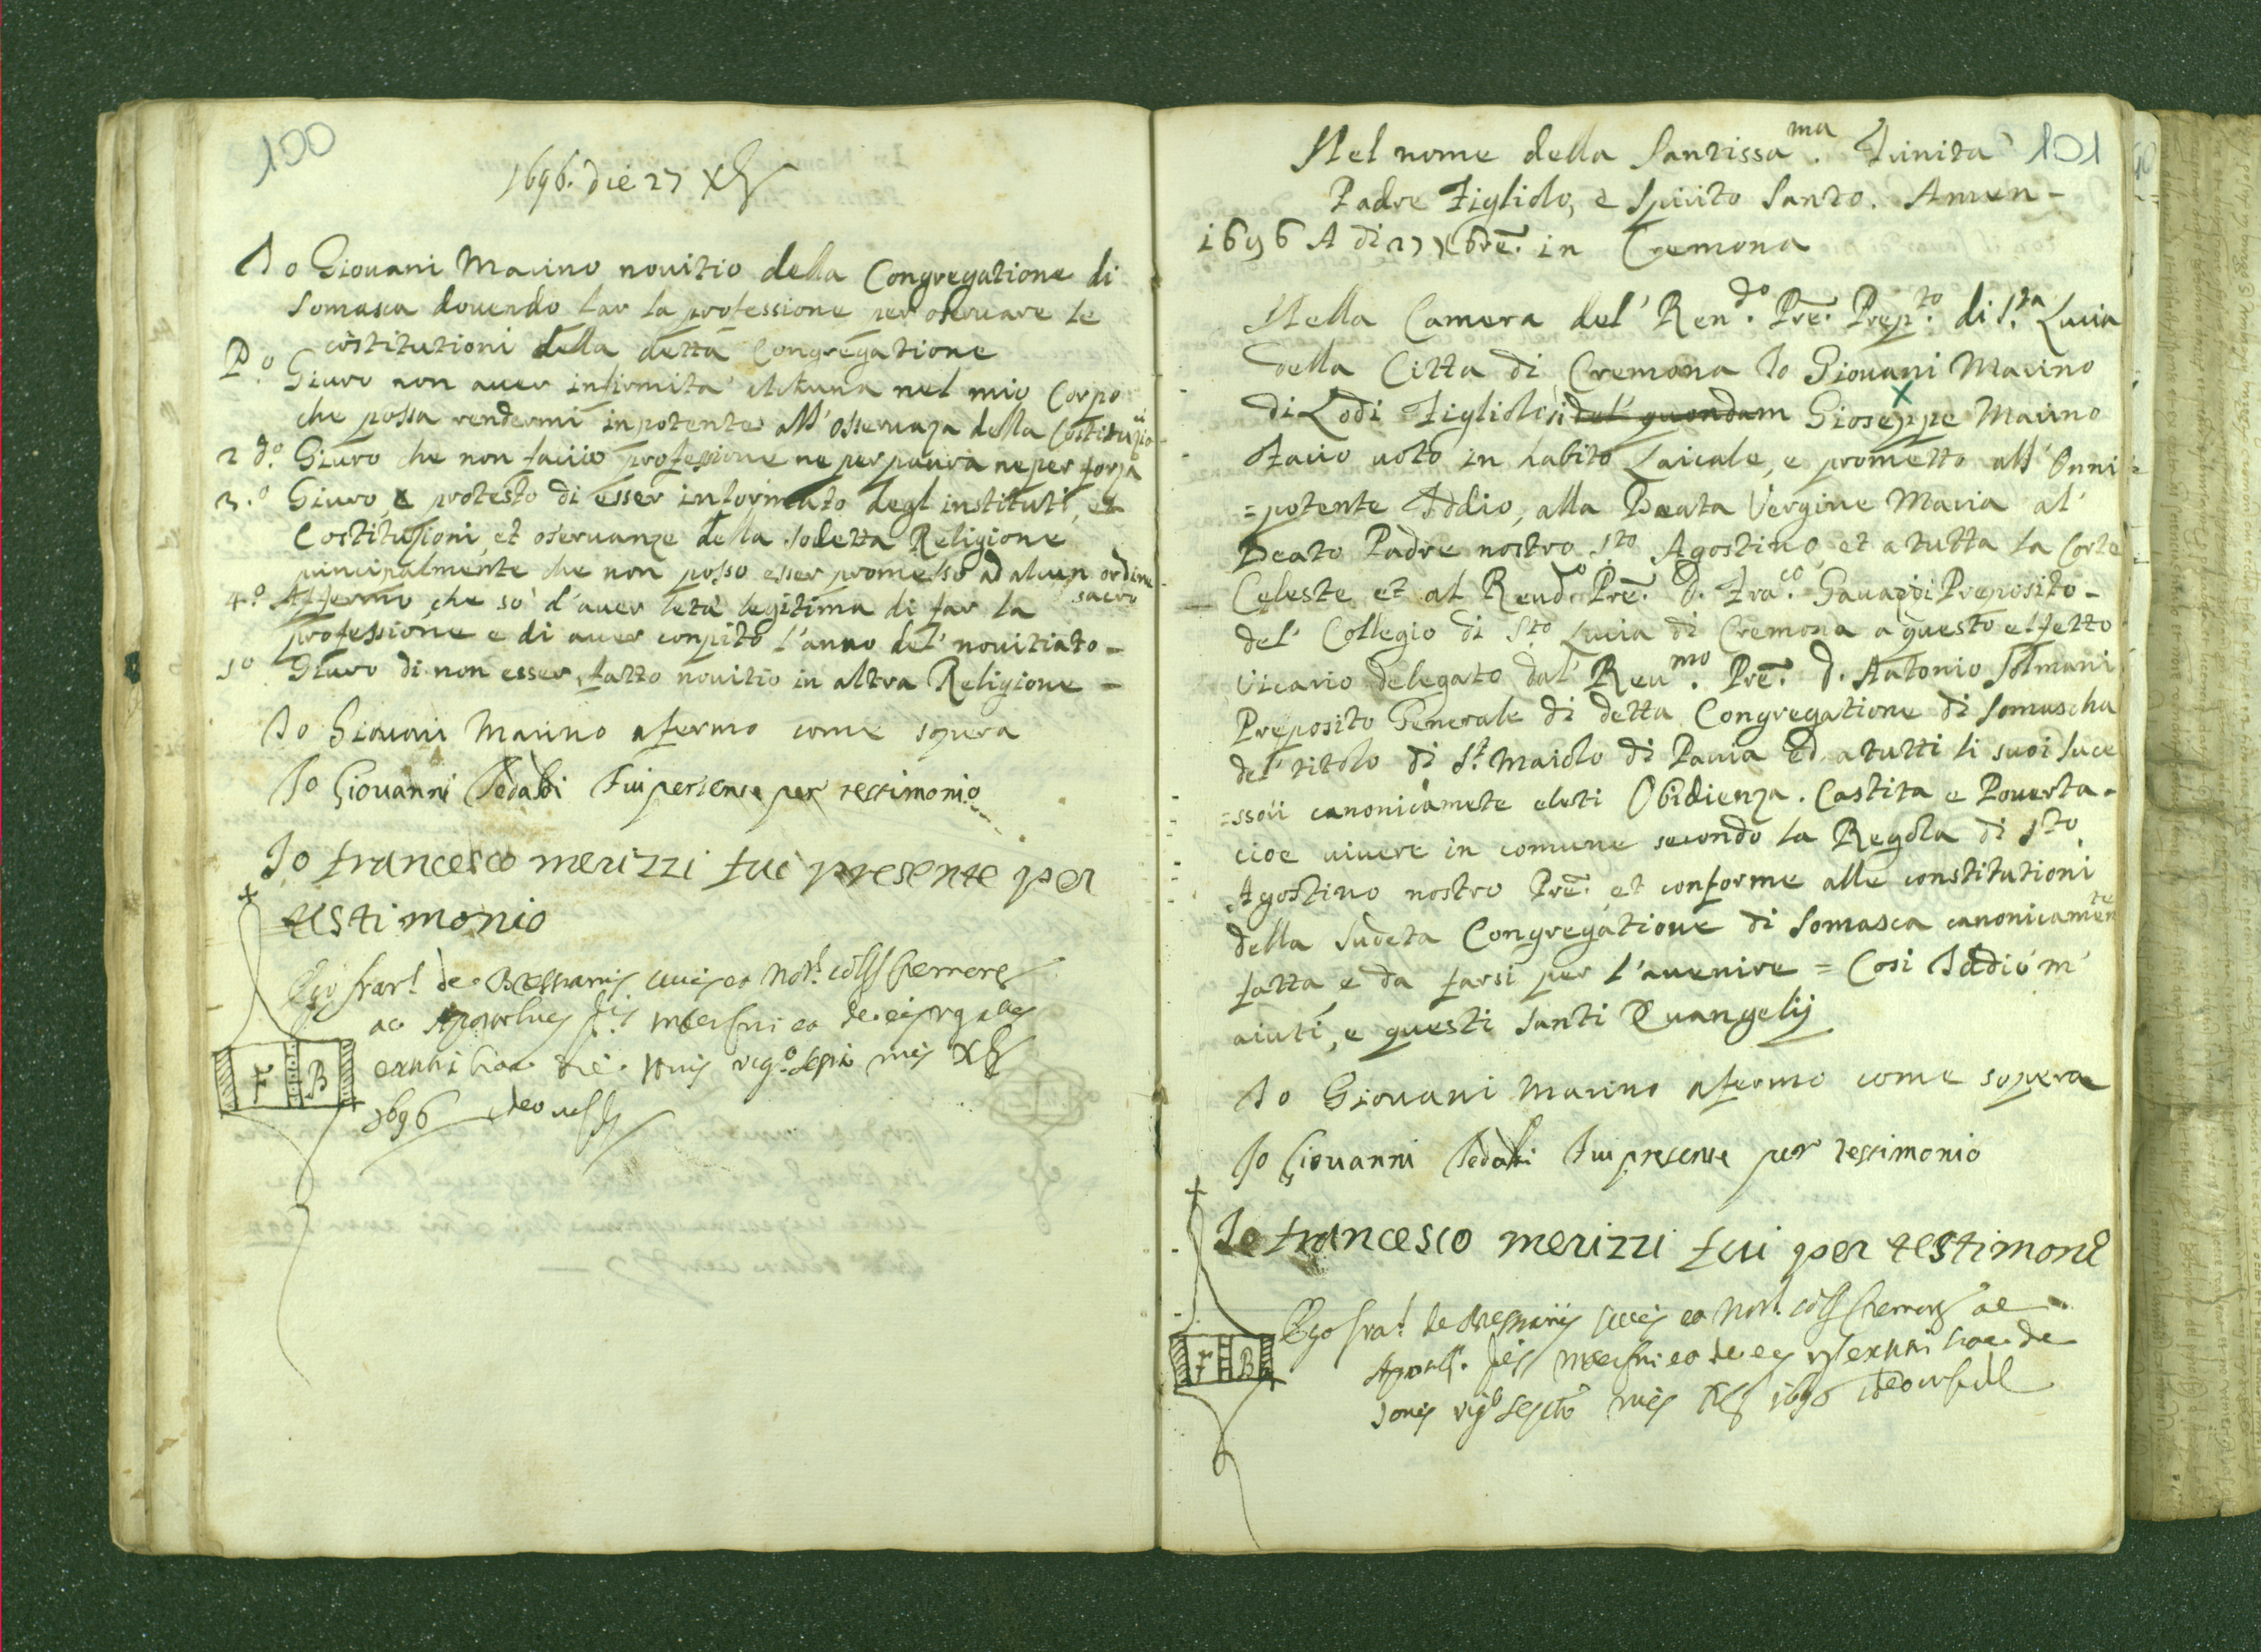 100
1696. die 27 Xbr
Io Giouani Marino nouitio della Congregatione di
Somasca douendo far la professione per oseruare le
cõstitutioni della detta Congregatione
P.o Giuro non auer infirmita alcuna nel mio Corpo
che possa rendermi inpotente all' osseruaza della Costituzio
2 do. Giuro che non faccio professione ne per paura ne per forza
3.o Giuro, e protesto di esser informato degl instituti, et
Costitutioni, et oseruanze della sodetta Religione
principalmente che non posso esser promesso ad alcun ordine
sacro
4.o Affermo che so d'auer letà legitima di far la
professione e di auer conpito l'anno del' nouitiato -
5o Giuro di non esser fatto nouitio in altra Religione -
Io Giouani Marino afermo come sopera
Io Giouanni Fui persente per testimonio
Io francesco merizzi fui presente per
testimonio
Ego
F B
1696
101
Nel nome della Santissa ma. Trinita
Padre Figliolo, e Spirito Santo. Amen -
1696 A di 27 Xbre. in Cremona
Nella Camera del' Ren.do Pre. Prep.to di S.ta Lucia
della Citta di Cremona Io Giouani Marino
di Lodi Figliolo del' quondam Gioseppe Marino
Facio uoto in habito Laicale, e prometto all' Onni =
= potente Iddio, alla Beata Vergine Maria al'
Beato Padre nostro Sto Agostino, et a tutta la Corte
Celeste et al Reud.o Pre. D. Fra.co Gauazzi Preposito -
del' Collegio di Sto Lucia di Cremona a questo effetto
Vicario delegato dal' Reu.mo Pre. d. Antonio
Preposito Generale di detta Congregatione di Somascha
del' titolo di St. Maiolo di Pauia ed a tutti li suoi suce
=ssori canonicamete eletti Obidienza. Castita e Pouerta -
cioe uiuere in comune secondo la Regola di Sto
Agostino nostro Pre. et conforme alle constitutioni
della Sudeta Congregatione di Somasca canonicamente
fatta e da farsi per l'auenire = Cosi Iddio m'
aiuti, e questi Santi Euangelij
Io Giouani Marino afermo come sopera
Io Giouanni Fui presente per testimonio
Io francesco merizzi fui per testimone
Ego
F B
1696